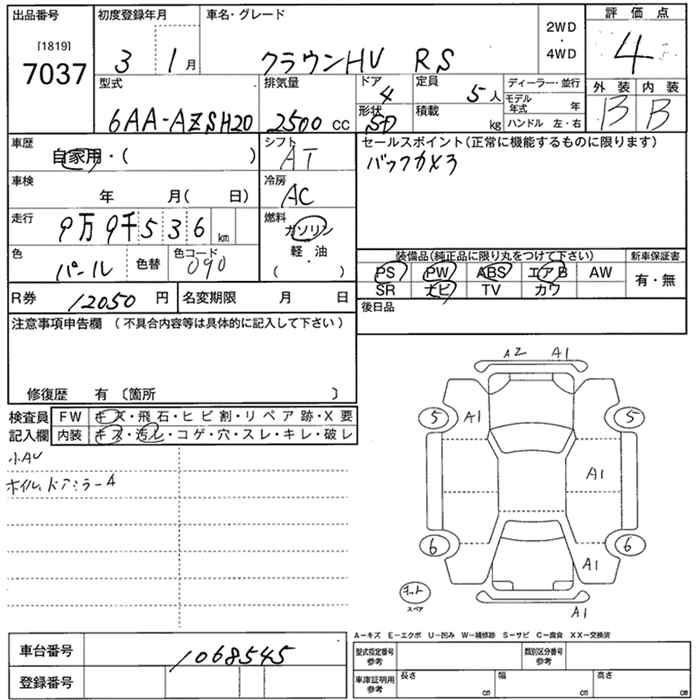 出品番号
[1819]
7037
初度登録年月
3 1月
車名・グレード
クラウンHV RS
2WD
・
4WD
評価点
4
型式
6AA-AZSH20
排気量
2500 cc
ドア
4
形状
SD
定員
5人
積載
kg
ディーラー・並行
モデル年式 年
ハンドル 左・右
外装 内装
B B
車歴
自家用・( )
シフト
AT
セールスポイント(正常に機能するものに限ります)
バックカメラ
車検
年 月( 日)
冷房
AC
走行
9万9千536 km
燃料
ガソリン
軽・油
( )
色
パール
色替
色コード
090
装備品(純正品に限り丸をつけて下さい)
新車保証書
PS PW ABS エアB AW
SR ナビ TV カワ
有・無
R券 12050円
名変期限 月 日
後日品
注意事項申告欄 (不具合内容等は具体的に記入して下さい)
修復歴 有 〔箇所 〕
検査員記入欄
FW キズ・飛石・ヒビ割・リペア跡・X要
内装 キズ・汚レ・コゲ・穴・スレ・キレ・破レ
小AU
ホイル、ドアミラーA
A2 A1
5 A1 5
A1
6 6
A1
スペア
A1
A−キズ E−エクボ U−凹み W−補修跡 S−サビ C−腐食 XX−交換済
車台番号
1068545
登録番号
型式指定番号
参考
類別区分番号
参考
車庫証明用
参考
長さ cm
幅 cm
高さ cm